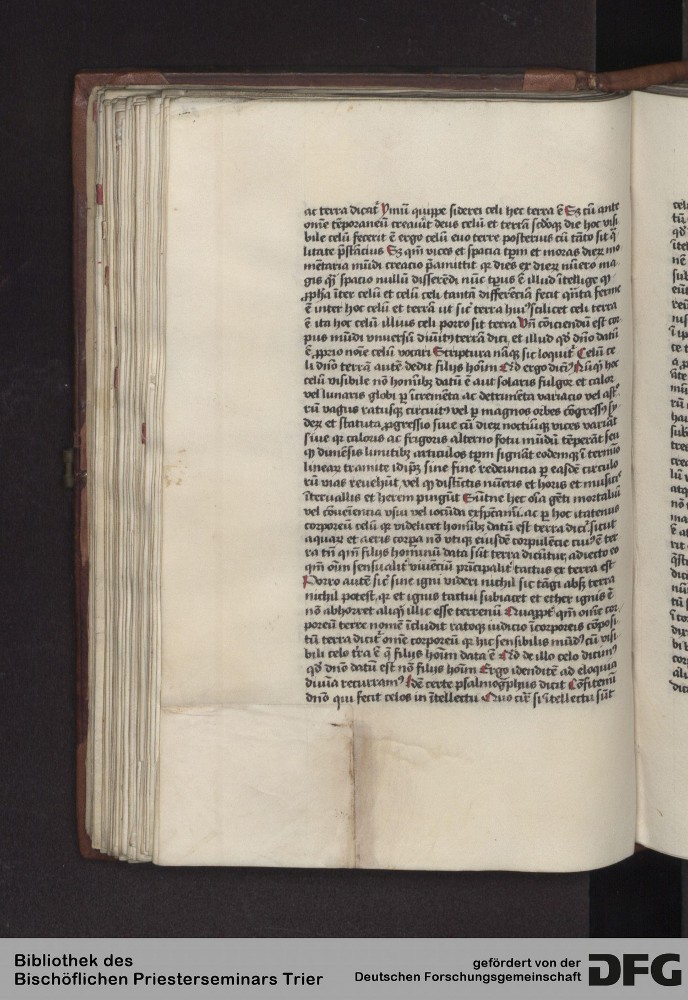 ac terra dicat᷑ Ymũ quippe siderei celi hec terra ẽ Sꝫ cũ ante
om̄e tẽporaneũ creauit deus celũ et terrã die hoc visi
bile celũ fecerit ẽ ergo celũ euo terre posterius cũ tãto sit q̃
litate p̃stãcius Sꝫ qm̃ vices et spacia tp̃m et moras dieꝝ mo
mẽtaria mũdi creacio p̃amittit qꝛ dies ex dieꝝ nũero ma
gis q̃ꝫ spacio nullũ differẽdi nũc tp̃us ẽ illud ĩtellige ꝙ
ꝓpħa ĩter celũ et celũ celi tantã differẽciã fecit q̃nta ferme
ẽ inter hoc celũ et terrã ut sic̃ terra huiꝰ scilicet celi terra
ẽ ita hoc celũ illius celi porro sit terra Vñ cõiciendũ est cor
pus mũdi vniuersũ terrã dici, et illud qd̛ dño datũ
ẽ ꝓprio noĩe celũ vocari Scriptura nãqꝫ sic loquit᷑ Celũ ce
li dño terrã autẽ dedit filijs hoĩm Ad ergo dicimꝰ Nũqͥd hoc
celũ visibile nõ homĩbꝫ datũ ẽ aut solaris fulgor et calor
vel lunaris globi ꝑ ĩcremẽta ac detrimẽta variacio vel ast
rũ vagus ratusqꝫ circuitꝰ vel ꝑ magnos orbes cõgressꝰ sy
deꝝ et statuta ꝓgressio siue cũ dieꝝ noctiũqꝫ vices variãt
siue qꝛ caloris ac frigoris alterno fotu mũdũ tẽperãt seu
ꝙ dimẽsis limitibꝫ articulos tp̃m signãt eodemqꝫ ĩ termĩo
lineaꝝ tramite idip̃ꝫ sine fine redeuncia ꝑ easdẽ circulo
rũ vias reuehũt, vel ꝙ distĩctis nũeris et horis et musicꝭ
ĩteruallis et herem pingũt Sũtne hec oĩa gẽti mortaliũ
vel cõueniencia vsu vel iocũda exꝑiẽtĩ. ac ꝑ hoc itatenus
corporeũ celũ qꝛ videlicet homĩbꝫ datũ est terra dicit᷑ sicut
aquaꝝ et aeris corpa nõ vtiqꝫ eiusdẽ corpulẽcie cuiꝰ ẽ ter
ra tñ qm̃ filijs hominũ data sũt terra dicũtur, adiecto eo
qm̃ oĩm sensualit᷑ viuẽciũ prĩcipalit᷑ tactus et terra est
Porro autẽ sic̃ sine igni videri nichil sic tãgi absqꝫ terra
nichil potest, qꝛ et ignis tactui subiacet et ether ignis ẽ
nõ abhorret aliqͥd illic esse terrenũ Quapp̱t qm̃ om̄e cor
poreũ terre nomẽ ĩcludit ratoqꝫ iudicio ĩcorporeis cõposi
tũ terra dicit᷑ om̄e corporeũ qꝛ hic sensibilis mũdꝰ cũ visi
bili celo tr̃a ẽ q̃ filijs hoĩm data ẽ Ad de illo celo dicimꝰ
qd̛ dño datũ est nõ filijs hoĩm Ergo idenditẽ ad eloquia
diuĩa recurramꝰ Idẽ certe psalmogꝛphus dicit Cõfitemĩ
dño qui fecit celos in ĩtellectu Quo cir̃ si ĩtellectu sũt
Bibliothek des
Bischöflichen Priesterseminars Trier
gefördert von der
Deutschen Forschungsgemeinschaft
DFG